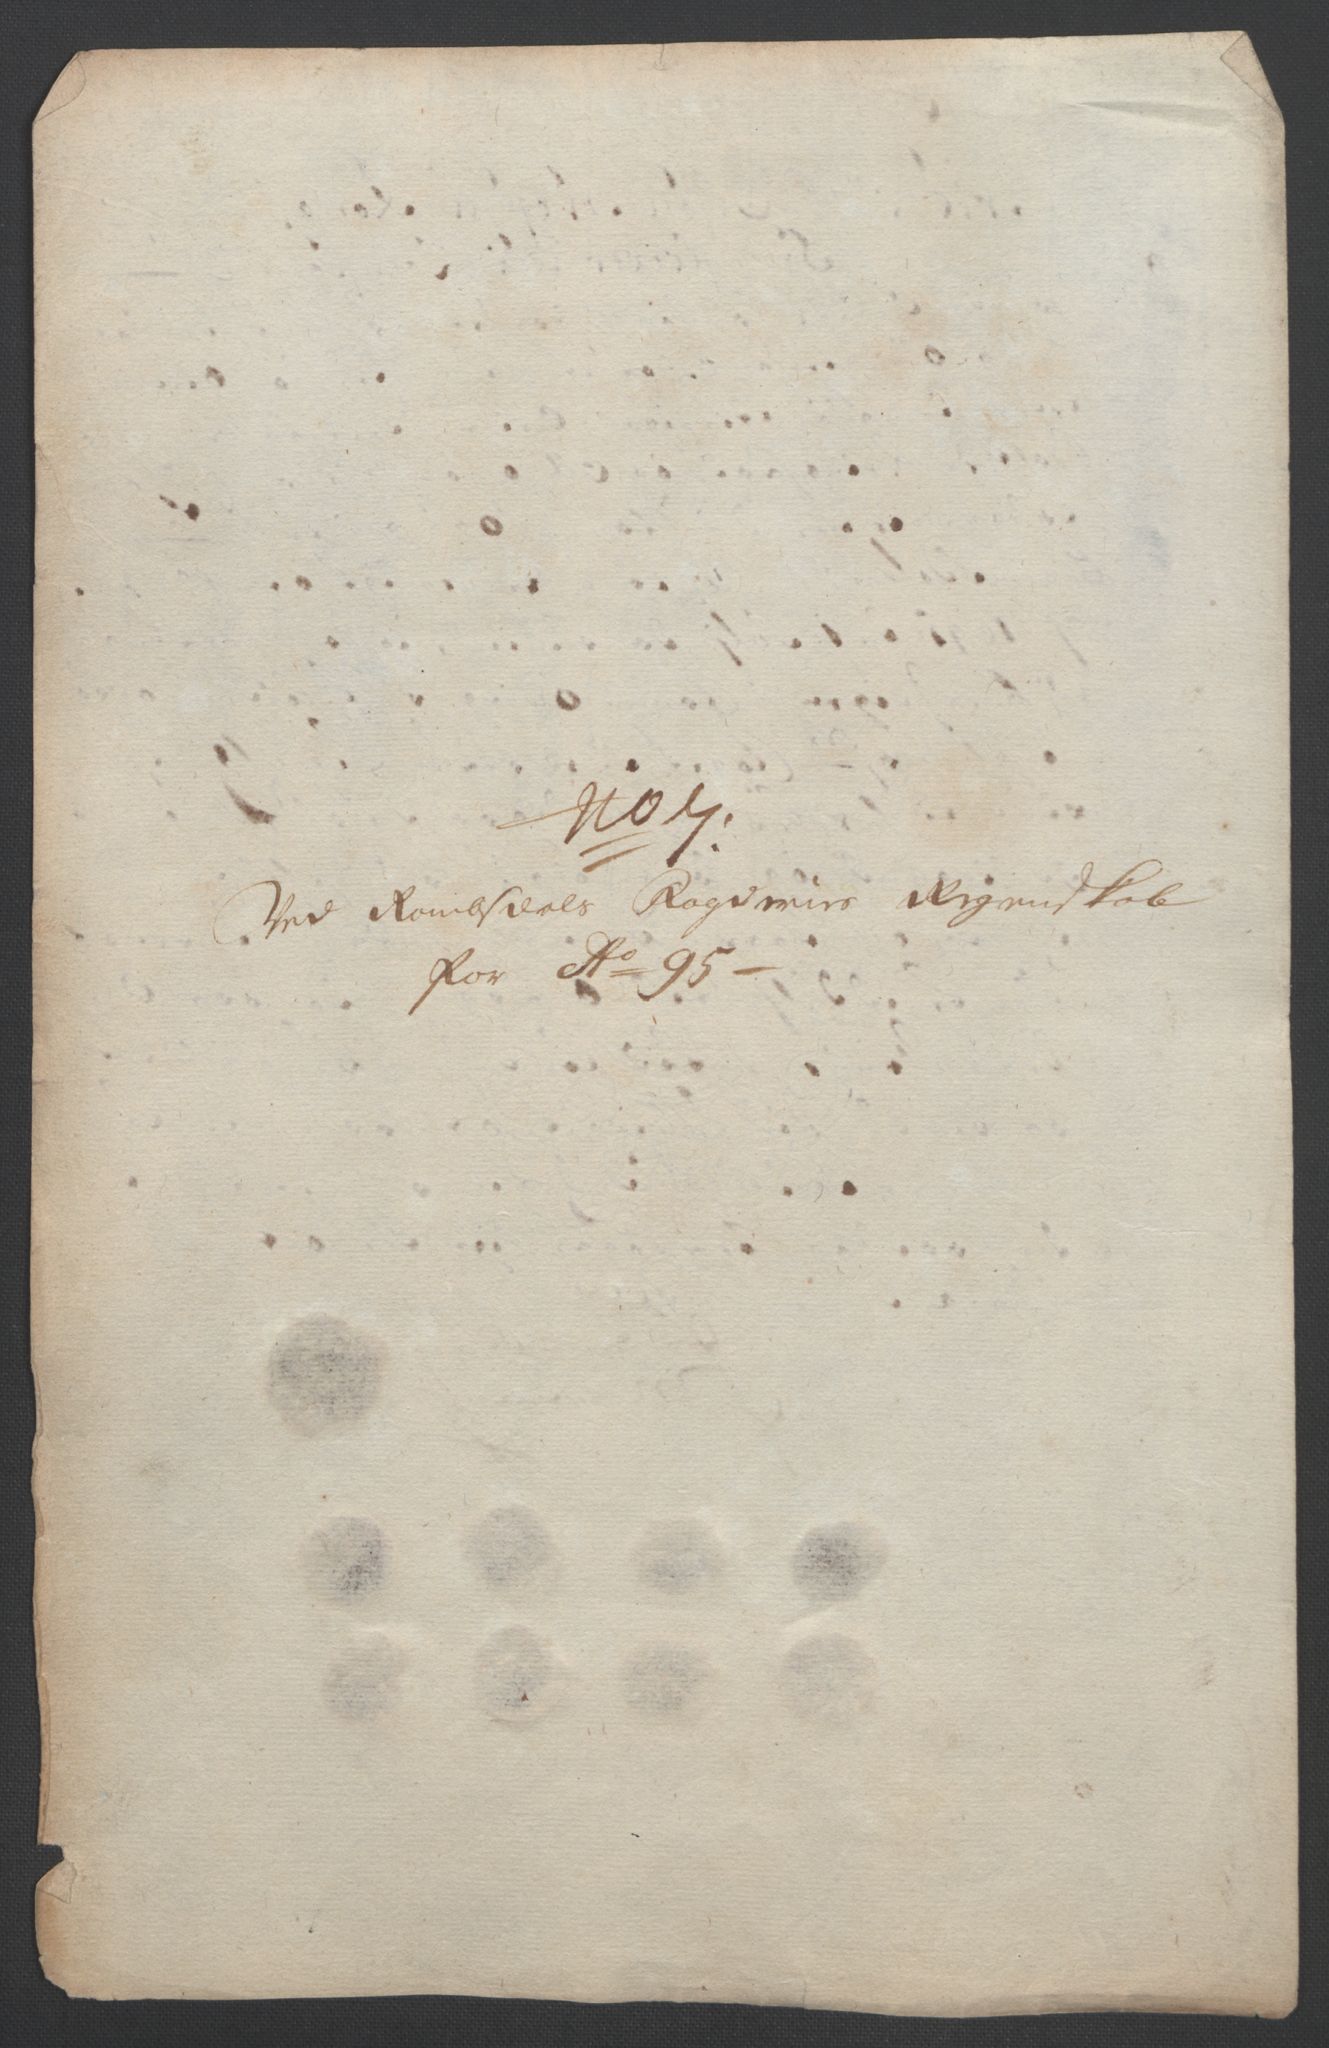 No 7:
Ved Rombsdals Fogderies Regenskab
for Ao 95 –